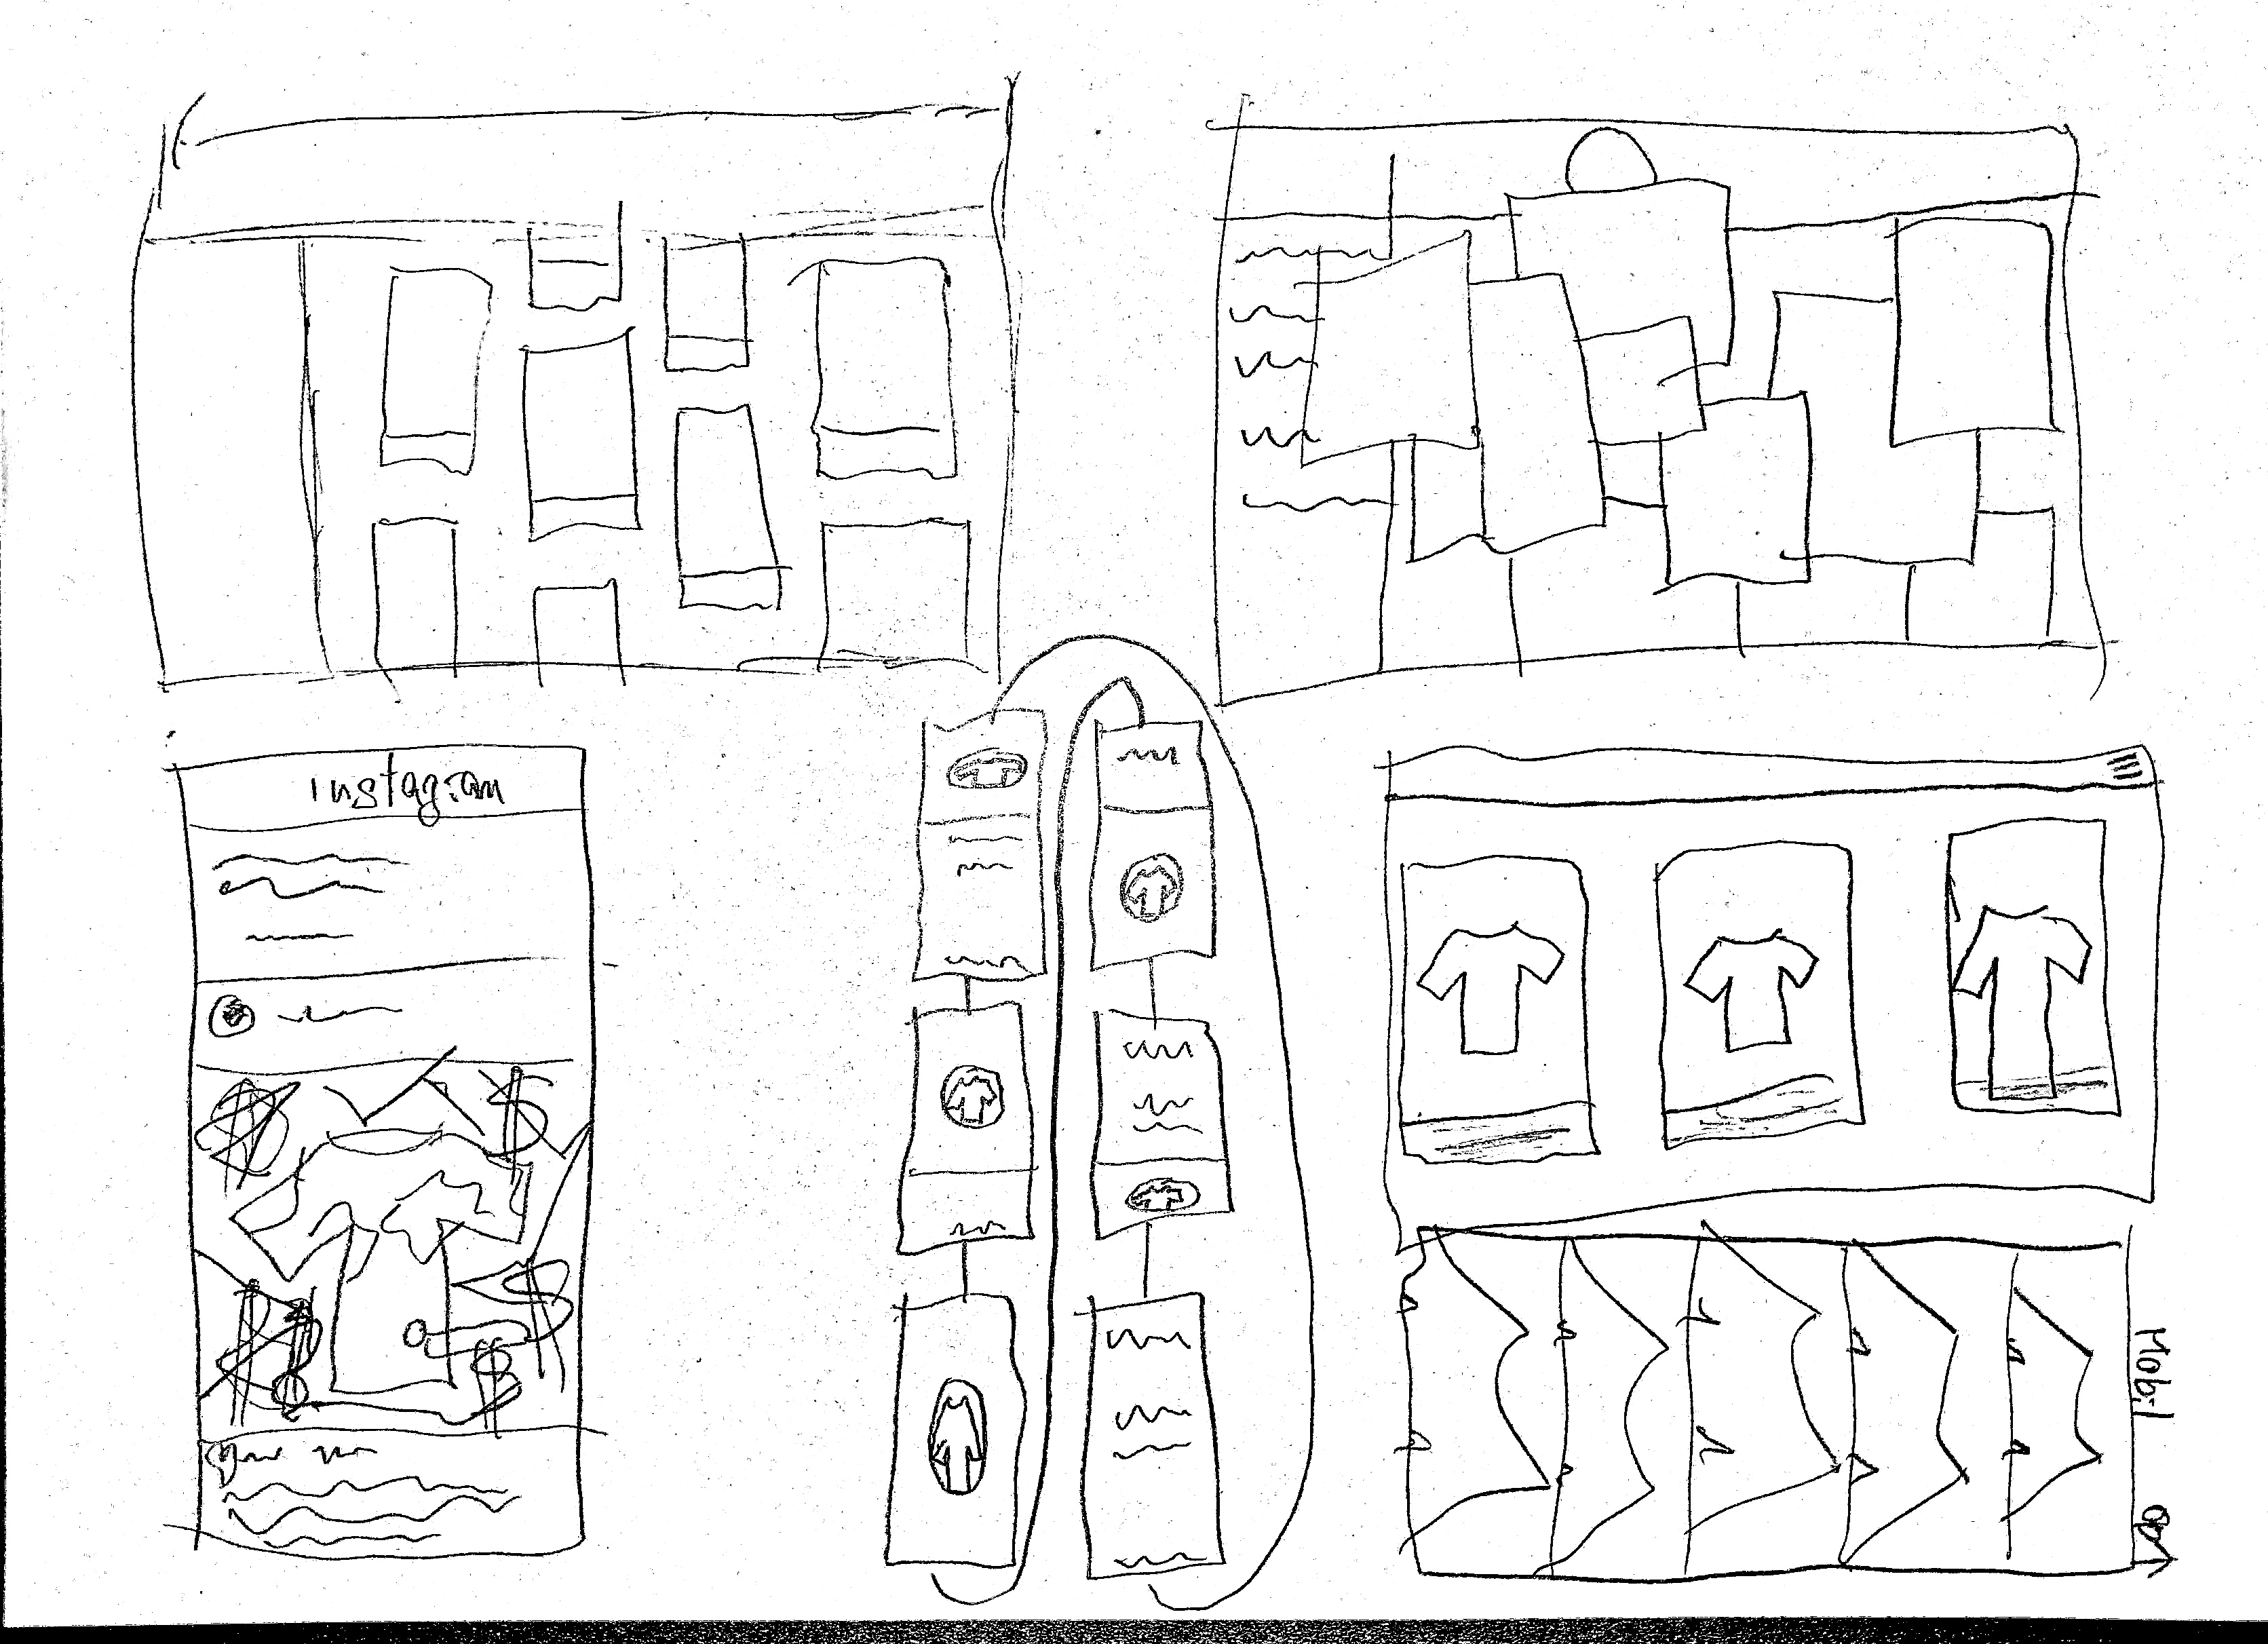 Instagram
Mobil